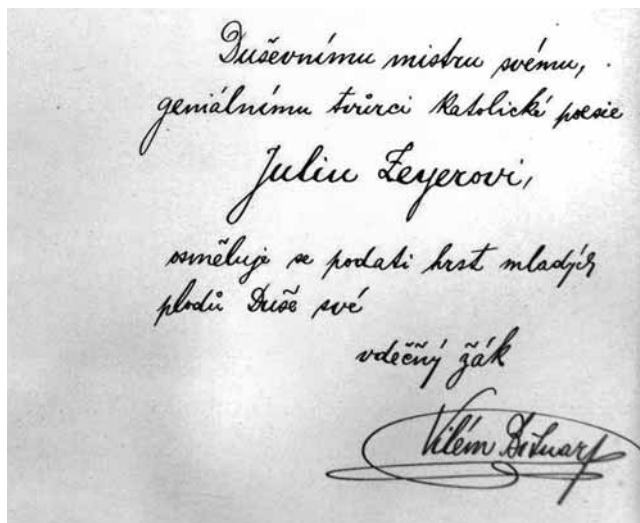 Duševnímu mistru svému,
geniálnímu tvůrci katolické poesie
Juliu Zeyerovi,
osměluje se podati hrst mladých
plodů Duše své
vděčný žák
Vilém Bitnar